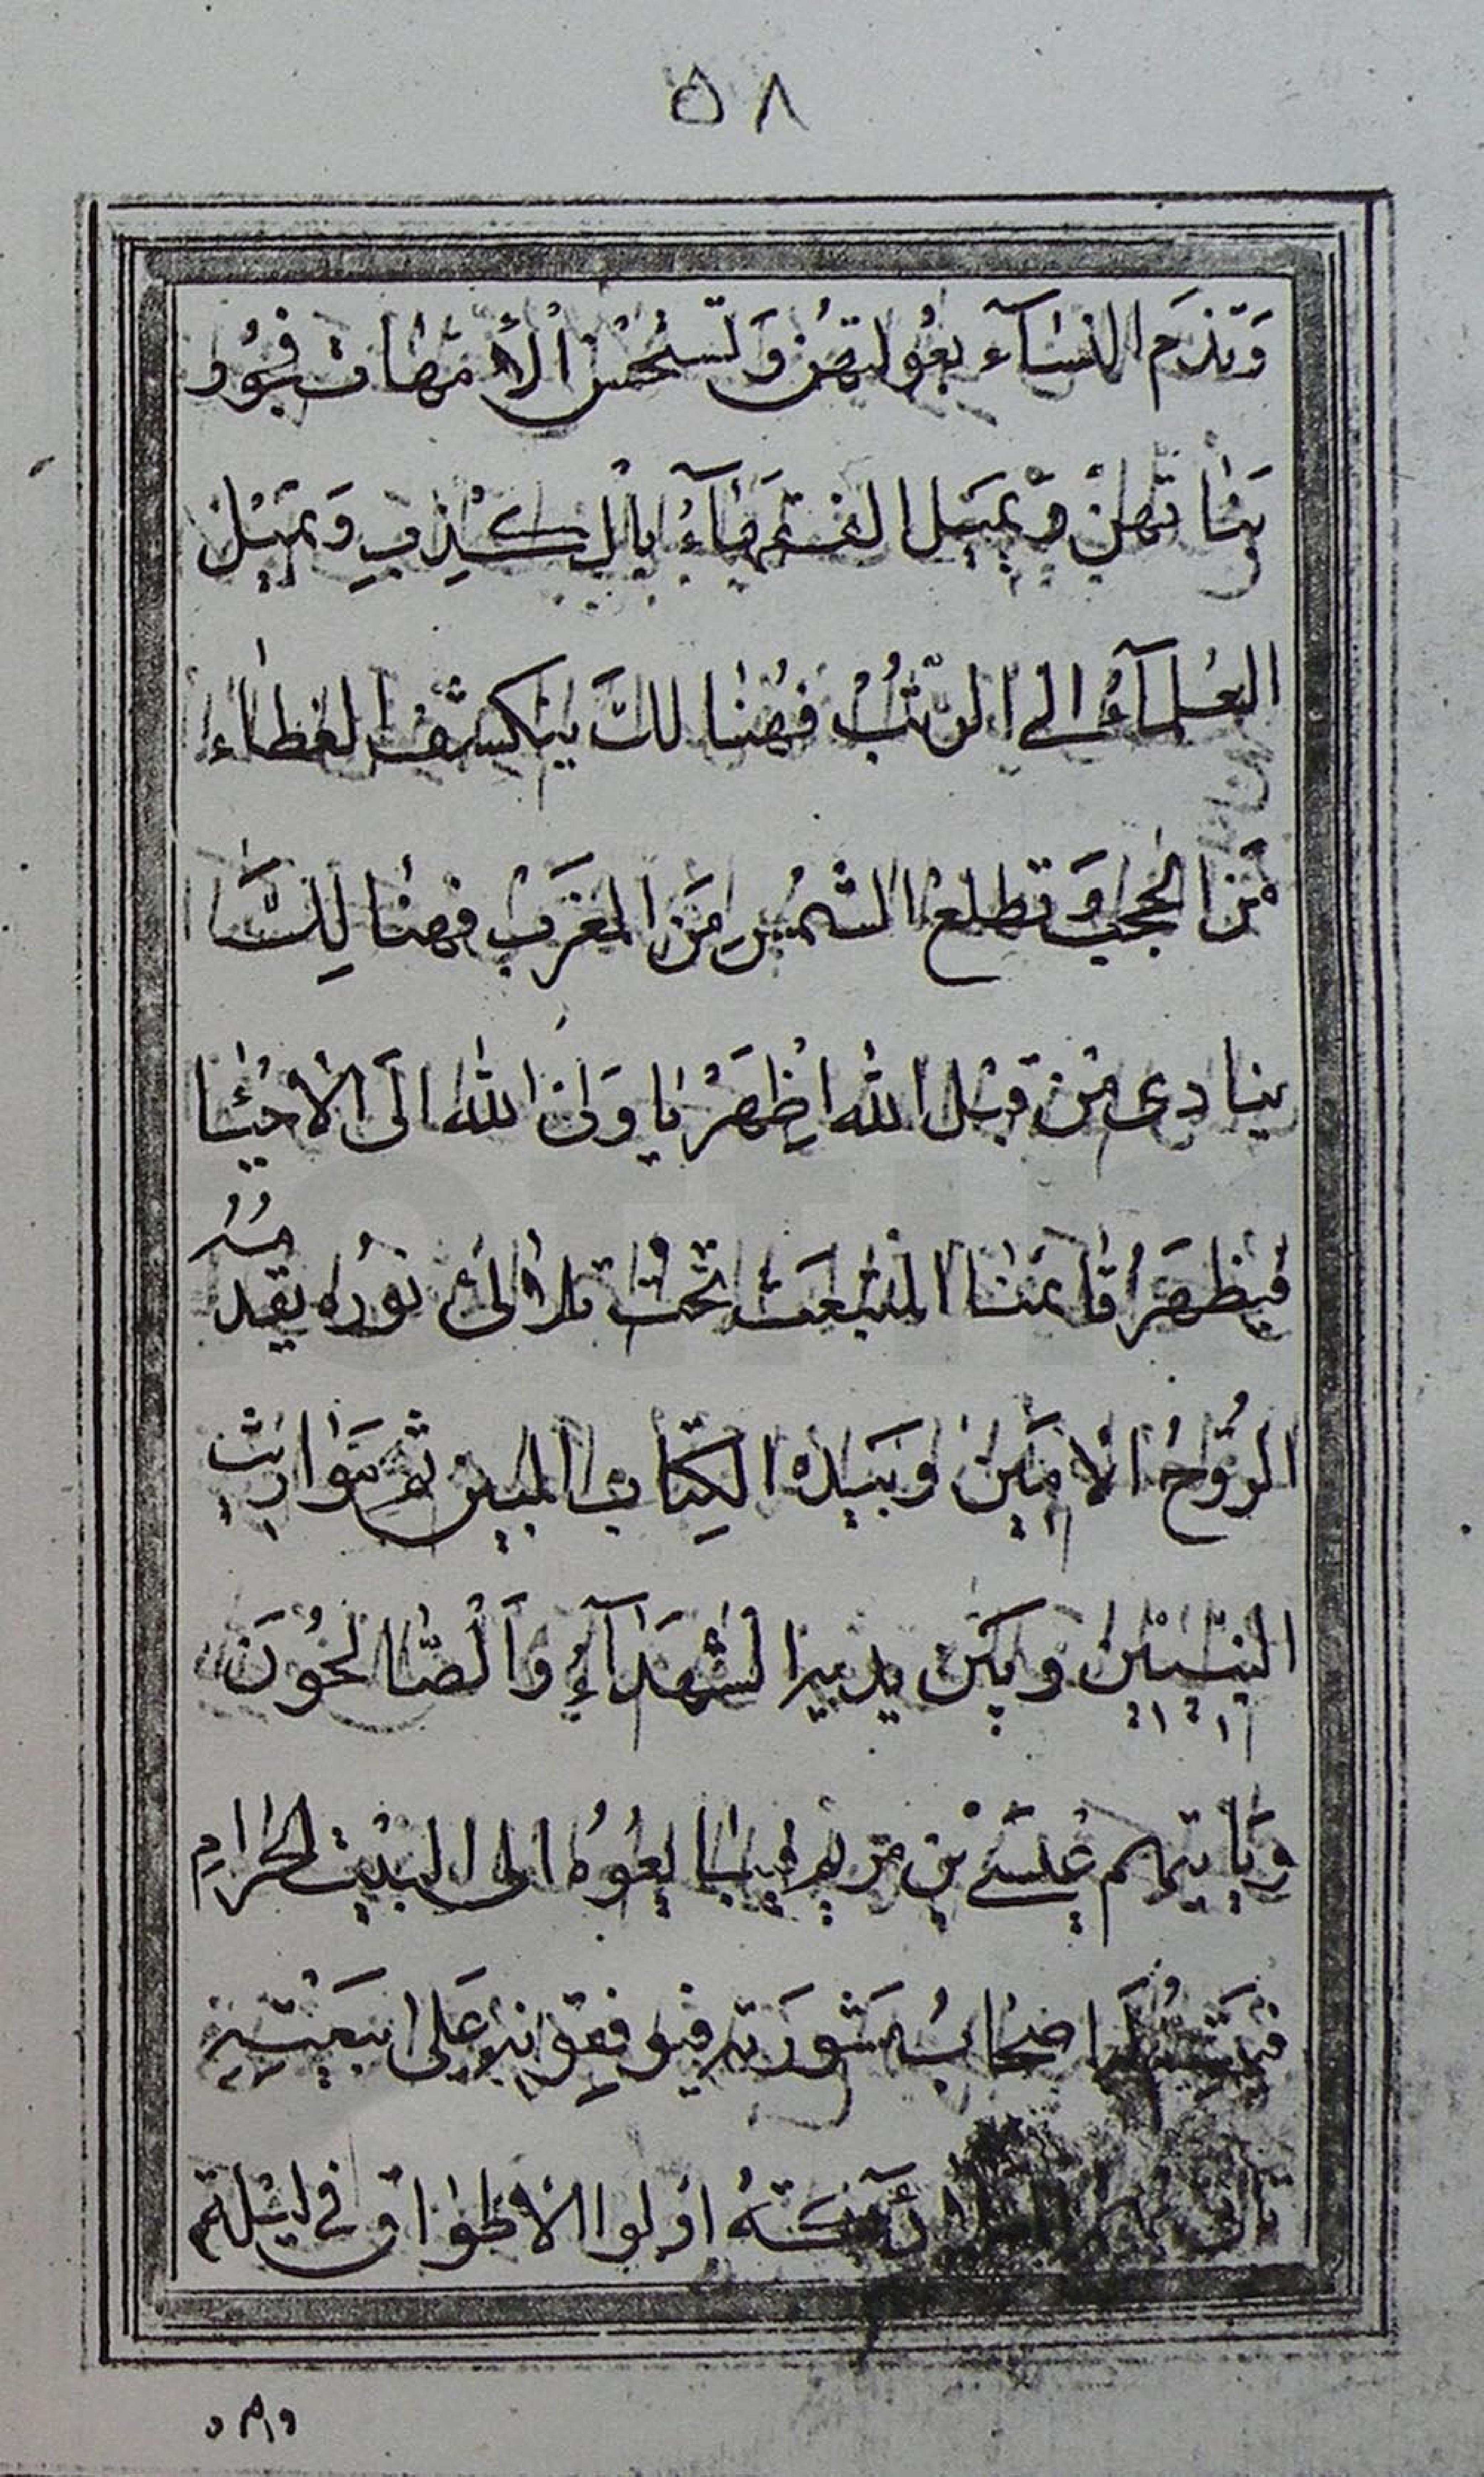 ٥٨
وَتذرَم النسَآء بعُولتهُن وَتسنحُسْ الأمّهَات فجُور
بَنٰاتهنْ وَيميَل الفقهَآءُ بالِكُذبِ وَيميُل
العُلمآءُ الے الرّيبُ فهُنٰا لكَ ينكشف الغطاء
مَن الحجب وَ تطلع الشمُس مَن المغرَب فهنٰا لِكَ
ينادى مْن قبْل الله اظهَرْ يا وَلىَ الله الَى الاحيٰا
فيظهَرُ قائمنا المنبعَث تحُت تلألئ نورُه يقد
مهُ
الرُوحُ الامَين وَبيَده الكِتاب المبين ثم مَوٰاريث
النبييْن وَبيَن يديه الشهَدَآءِ وَالصّالحُونَ
وَيَاتيهم عيسَے بْن مَريم فيبايعُوُه الى البيْت الحرٰامِ
اصحابُ مشورَته فيوفقونه عَلى بيعَتِه
اوْلوا الأطوٰاق فى ليْلة